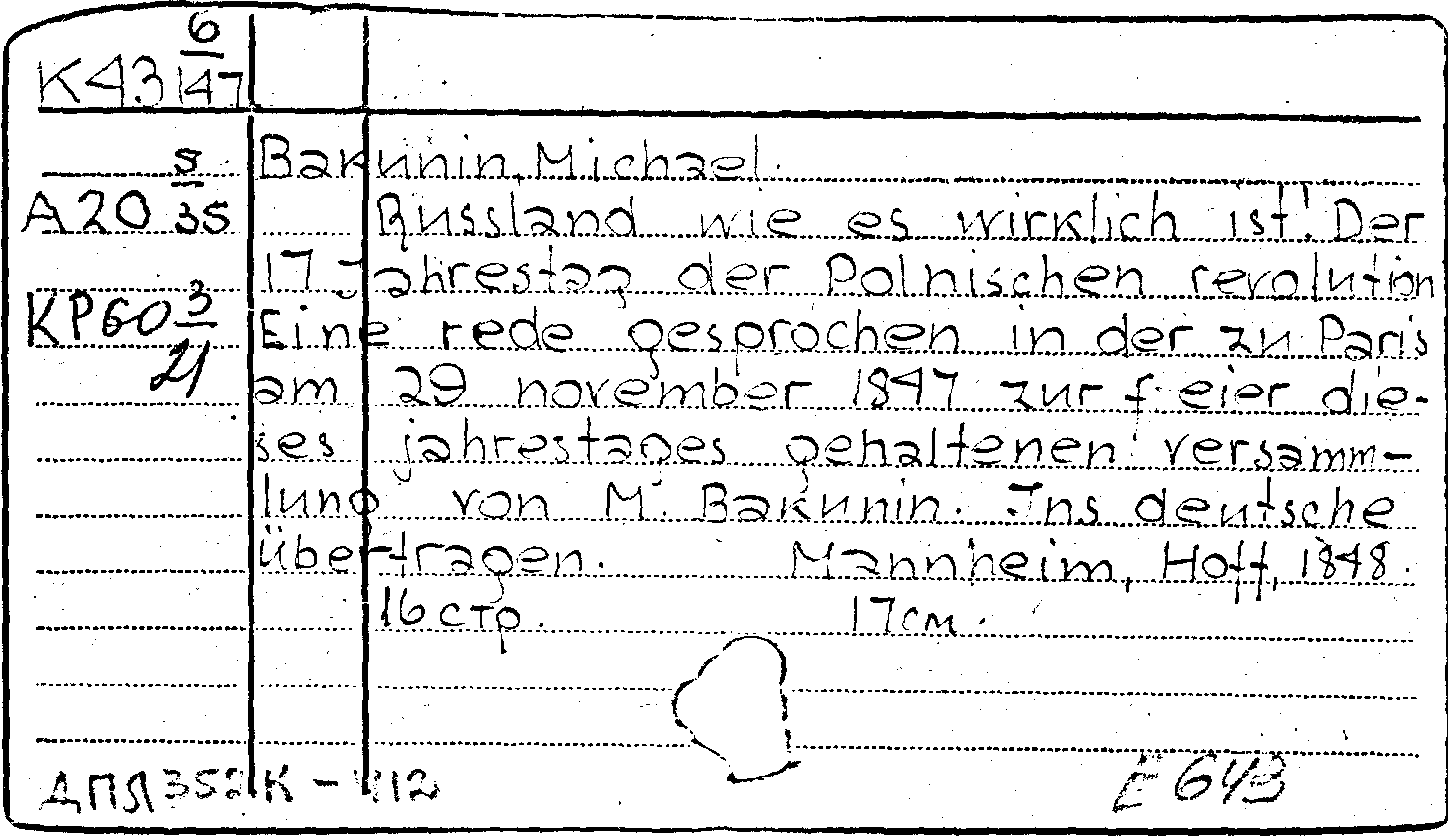 K43 6/147
Bakunin, Michael.
A20 8/35
Russland wie es wirklich ist! Der
17 Jahrestag der Polnischen revolution
KP60 3/21
Eine rede gesprochen in der zu Paris
am 29 november 1847 zur feier die-
ses jahrestages gehaltenen versamm-
lung von M. Bakunin. Ins deutsche
übertragen. Mannheim, Hoff, 1848.
16 стр. 17см.
E 643